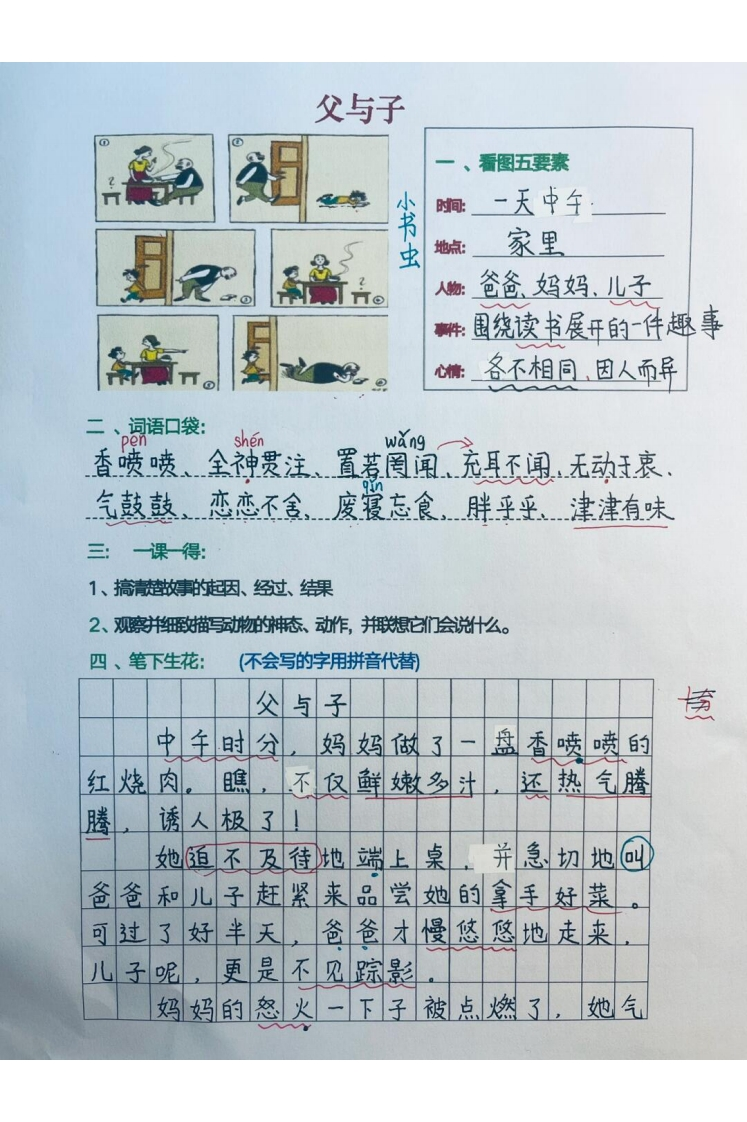 父与子
小书虫
一、看图五要素
时间：一天中午
地点：家里
人物：爸爸、妈妈、儿子
事件：围绕读书展开的一件趣事
心情：各不相同，因人而异
二、词语口袋：
pēn shén wǎng
香喷喷、全神贯注、置若罔闻、充耳不闻、无动于衷、
qǐn
气鼓鼓、恋恋不舍、废寝忘食、胖乎乎、津津有味
三： 一课一得：
1、搞清楚故事的起因、经过、结果
2、观察并细致描写动物的神态、动作，并联想它们会说什么。
四、笔下生花： (不会写的字用拼音代替)
父与子
中午时分，妈妈做了一盘香喷喷的
红烧肉。瞧，不仅鲜嫩多汁，还热气腾
腾，诱人极了！
她迫不及待地端上桌，并急切地叫
爸爸和儿子赶紧来品尝她的拿手好菜。
可过了好半天，爸爸才慢悠悠地走来，
儿子呢，更是不见踪影。
妈妈的怒火一下子被点燃了，她气